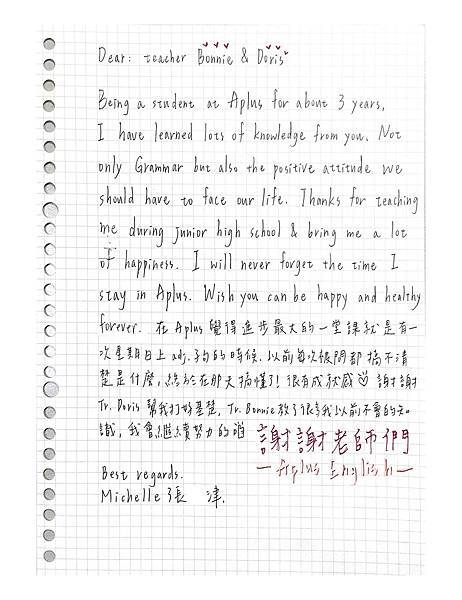 Dear: teacher Bonnie & Doris
Being a student at Aplus for about 3 years,
I have learned lots of knowledge from you. Not
only Grammar but also the positive attitude we
should have to face our life. Thanks for teaching
me during junior high school & bring me a lot
of happiness. I will never forget the time I
stay in Aplus. Wish you can be happy and healthy
forever. 在Aplus覺得進步最大的一堂課就是有一
次星期日上adj.子句的時候,以前每次恨關都搞不清
楚是什麼,終於在那天搞懂了!很有成就感♡謝謝
Tr. Doris 幫我打好基礎, Tr. Bonnie教了很多我以前不會的知
識,我會繼續努力的唷
謝謝老師們
—Aplus English—
Best regards.
Michelle 張 津.